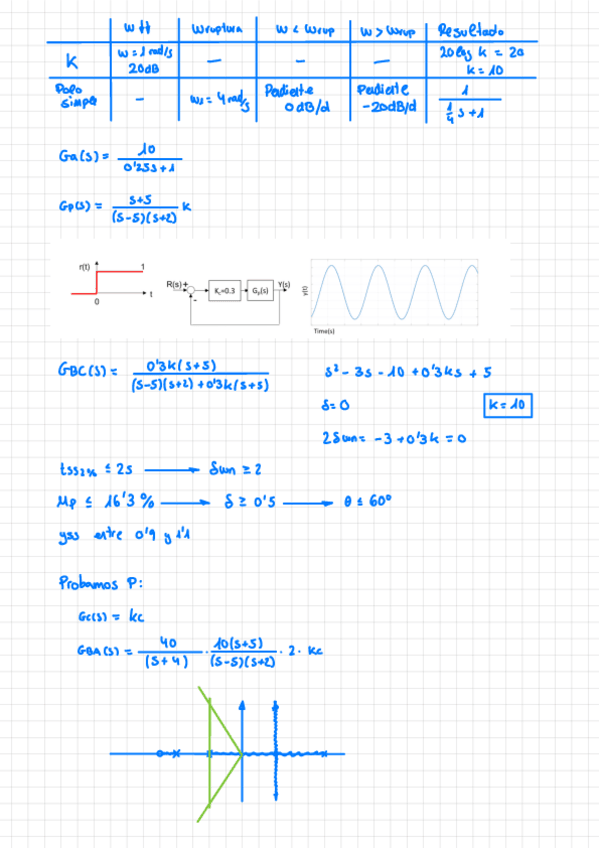 w ff wruptura w < wrup w > wrup Resultado
k w = 1 rad/s 20dB — — — 20log k = 20 k = 10
Polo simple — w1 = 4 rad/s Pendiente 0 dB/d Pendiente -20dB/d 1 / (1/4 s + 1)
Ga(s) = 10 / (0'25s + 1)
Gp(s) = (s+5) / ((s-5)(s+2)) k
r(t) 1 0 t R(s) + - Kc=0.3 Gp(s) Y(s) y(t) Time(s)
GBC(s) = 0'3k(s+5) / ((s-5)(s+2) + 0'3k(s+5)) s² - 3s - 10 + 0'3ks + 5
δ = 0 k = 10
2δwn = -3 + 0'3k = 0
tss2% ≤ 2s → δwn ≥ 2
Mp ≤ 16'3% → δ ≥ 0'5 → θ ≤ 60º
yss entre 0'9 y 1'1
Probamos P:
Gc(s) = kc
GBA(s) = 40 / (s+4) · 10(s+5) / ((s-5)(s+2)) · 2 · kc